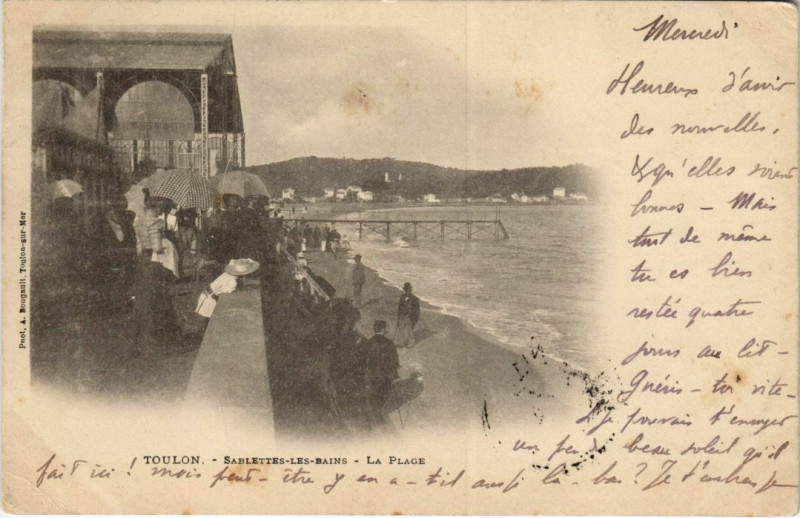 Mercredi
Heureux d'avoir
des nouvelles,
& qu'elles soient
bonnes - Mais
tout de même
tu es bien
restée quatre
jours au lit -
Guéris-toi vite -
Si je pouvais t'envoyer
un peu de beau soleil qu'il
fait ici ! mais peut-être y en a-t-il aussi là-bas ? Je t'embrasse
TOULON. - SABLETTES-LES-BAINS - LA PLAGE
Phot. A. Bougault, Toulon-sur-Mer